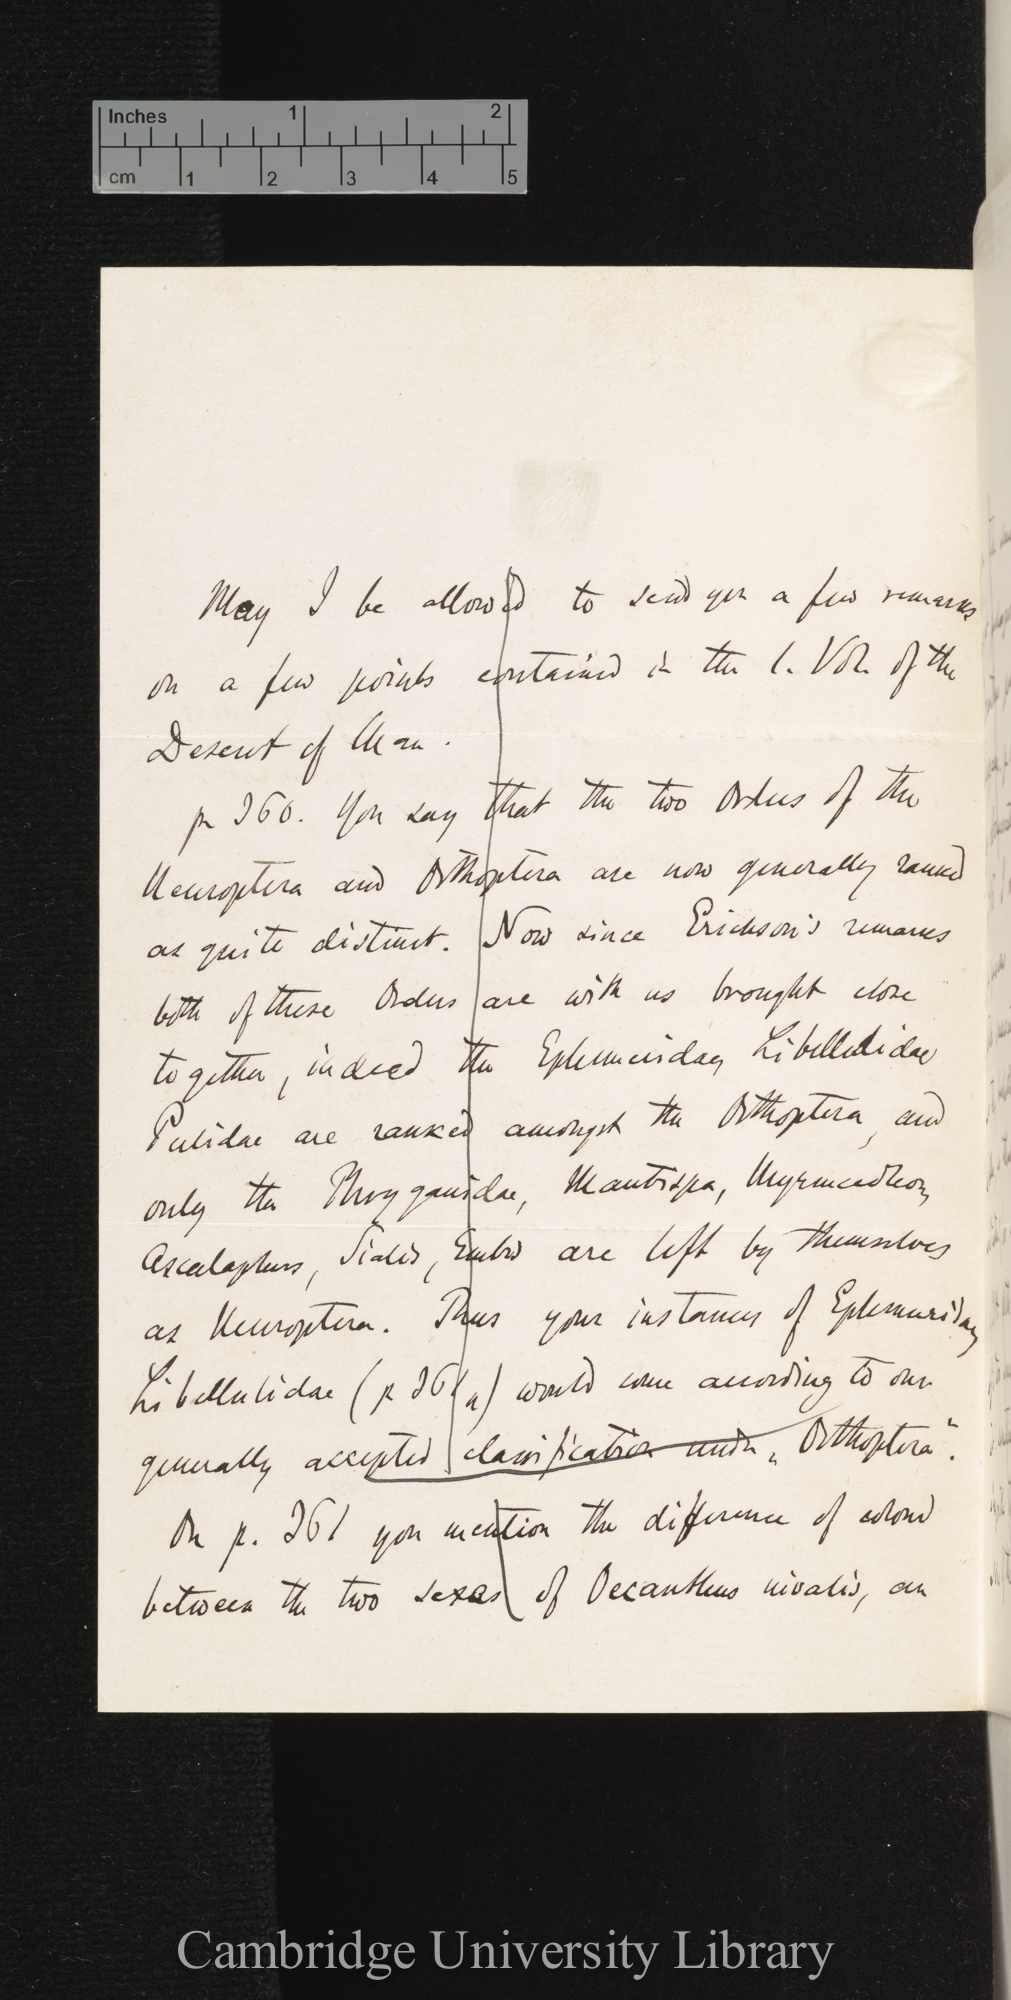 Inches 1 2
cm 1 2 3 4 5
May I be allowed to send you a few remarks
on a few points contained in the 1. Vol. of the
Descent of Man.
p 360. You say that the two Orders of the
Neuroptera and Orthoptera are now generally ranked
as quite distinct. Now since Erichson's remarks
both of these Orders are with us brought close
together, indeed the Ephemeridae, Libellulidae
are ranked amongst the Orthoptera, and
only the Phryganidae, Mantispa, Myrmecoleon,
Ascalaphus, Sialis, are left by themselves
as Neuroptera. Thus your instances of Ephemeridae,
Libellulidae (p 361) would come according to our
generally accepted classification under „Orthoptera“.
On p. 361 you mention the difference of colour
between the two sexes of Oecanthus nivalis, an
Cambridge University Library